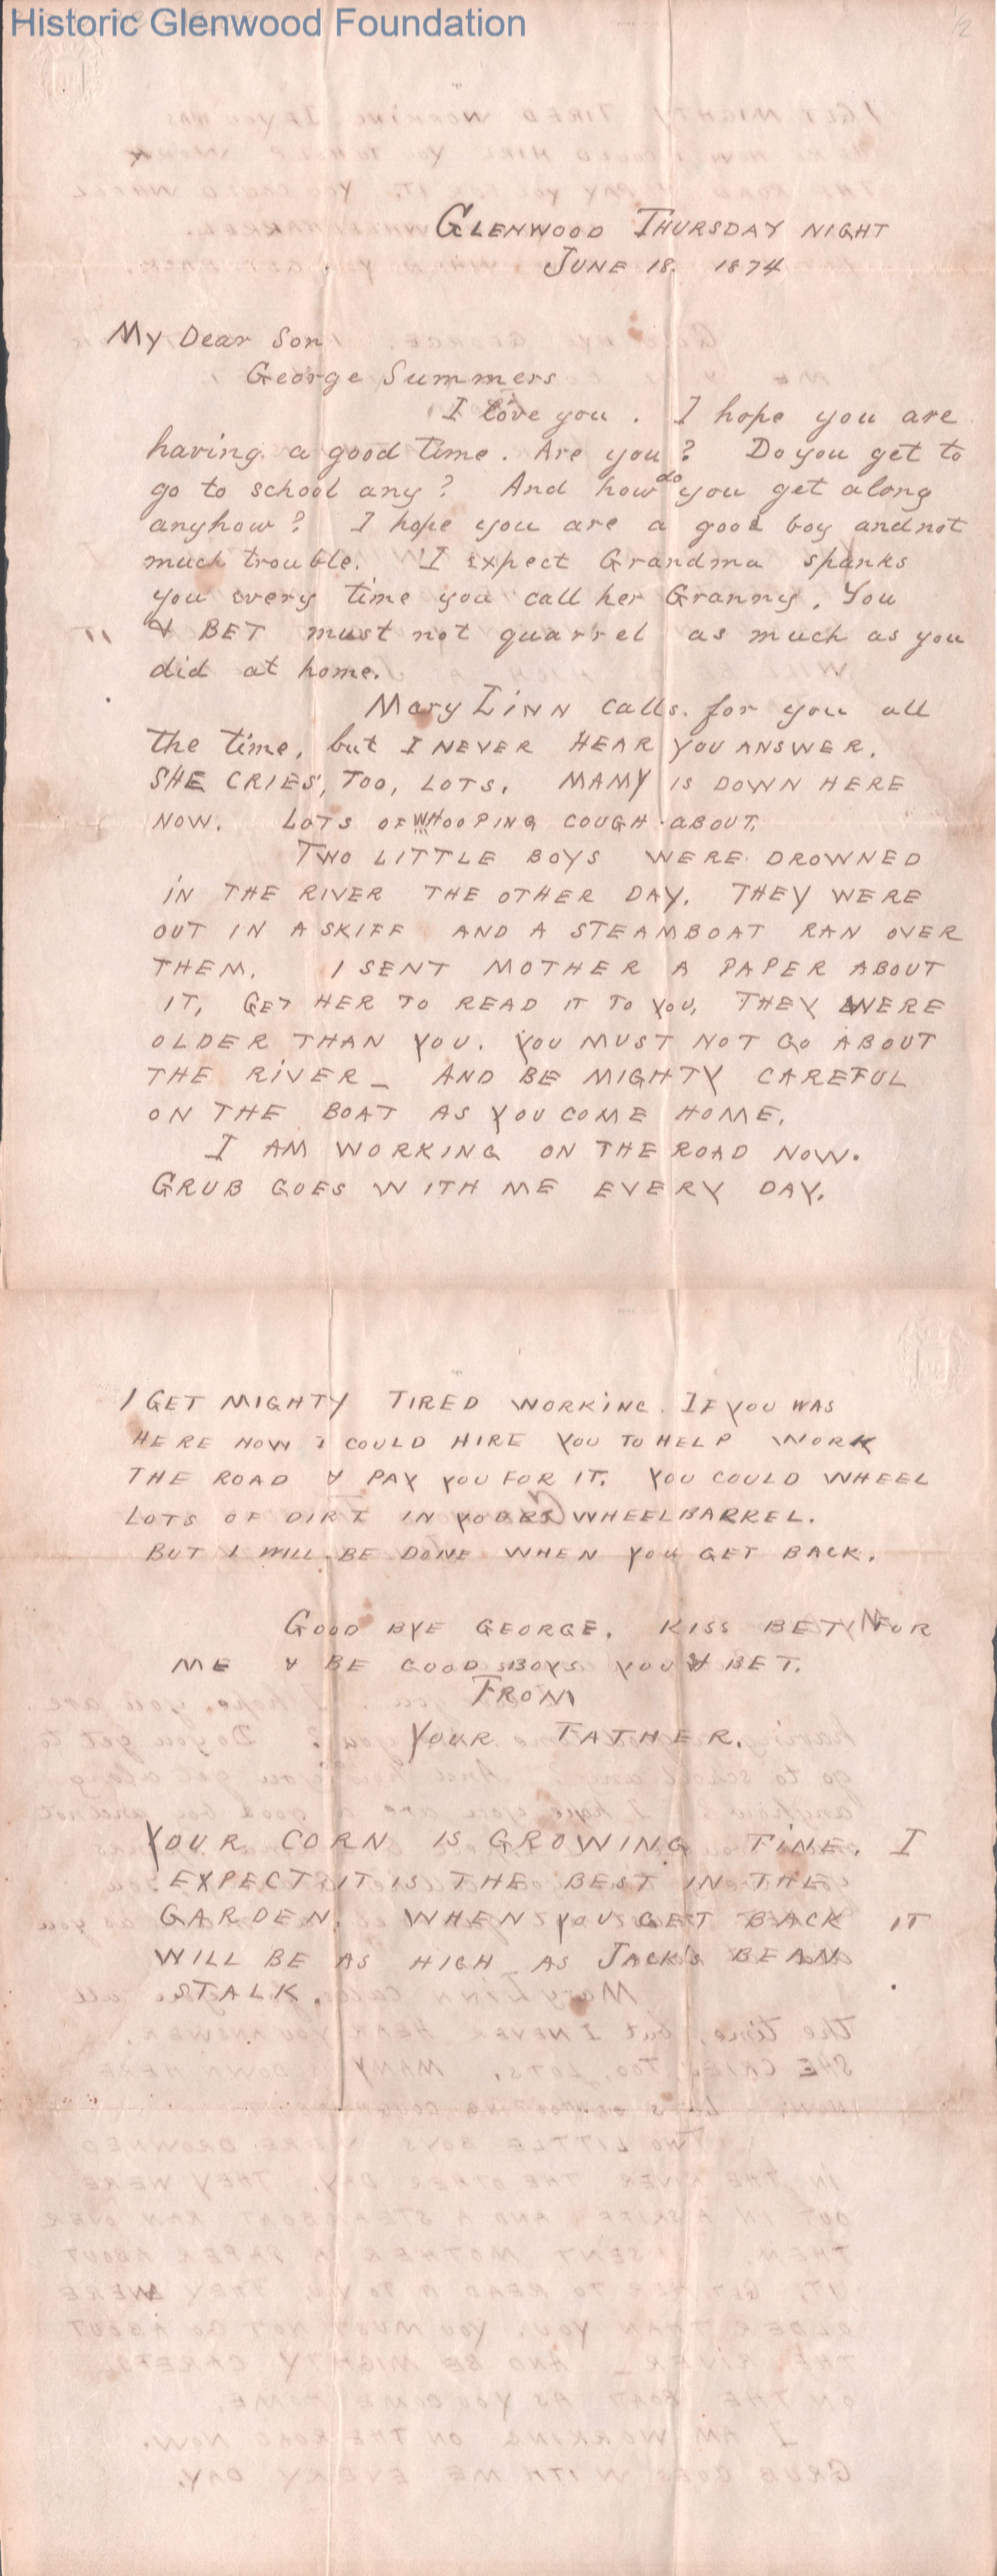 Historic Glenwood Foundation
1/2
GLENWOOD THURSDAY NIGHT
JUNE 18. 1874
My Dear Son
George Summers
I love you. I hope you are
having a good time. Are you? Do you get to
go to school any? And how do you get along
anyhow? I hope you are a good boy and not
much trouble. I expect Grandma spanks
you every time you call her Granny. You
& BET must not quarrel as much as you
did at home.
Mary LINN calls for you all
the time, but I NEVER HEAR YOU ANSWER.
SHE CRIES, TOO, LOTS. MAMY IS DOWN HERE
NOW. LOTS OF WHOOPING COUGH ABOUT.
TWO LITTLE BOYS WERE DROWNED
IN THE RIVER THE OTHER DAY. THEY WERE
OUT IN A SKIFF AND A STEAMBOAT RAN OVER
THEM. I SENT MOTHER A PAPER ABOUT
IT, GET HER TO READ IT TO YOU, THEY WERE
OLDER THAN YOU. YOU MUST NOT GO ABOUT
THE RIVER _ AND BE MIGHTY CAREFUL
ON THE BOAT AS YOU COME HOME.
I AM WORKING ON THE ROAD NOW.
GRUB GOES WITH ME EVERY DAY.
I GET MIGHTY TIRED WORKING. IF YOU WAS
HERE NOW I COULD HIRE YOU TO HELP WORK
THE ROAD & PAY YOU FOR IT. YOU COULD WHEEL
LOTS OF DIRT IN YOUR WHEELBARREL.
BUT I WILL BE DONE WHEN YOU GET BACK.
GOOD BYE GEORGE. KISS BET FOR
ME & BE GOOD BOYS YOU & BET.
FROM
YOUR FATHER.
YOUR CORN IS GROWING FINE. I
EXPECT IT IS THE BEST IN THE
GARDEN. WHEN YOU GET BACK IT
WILL BE AS HIGH AS JACK'S BEAN
STALK.